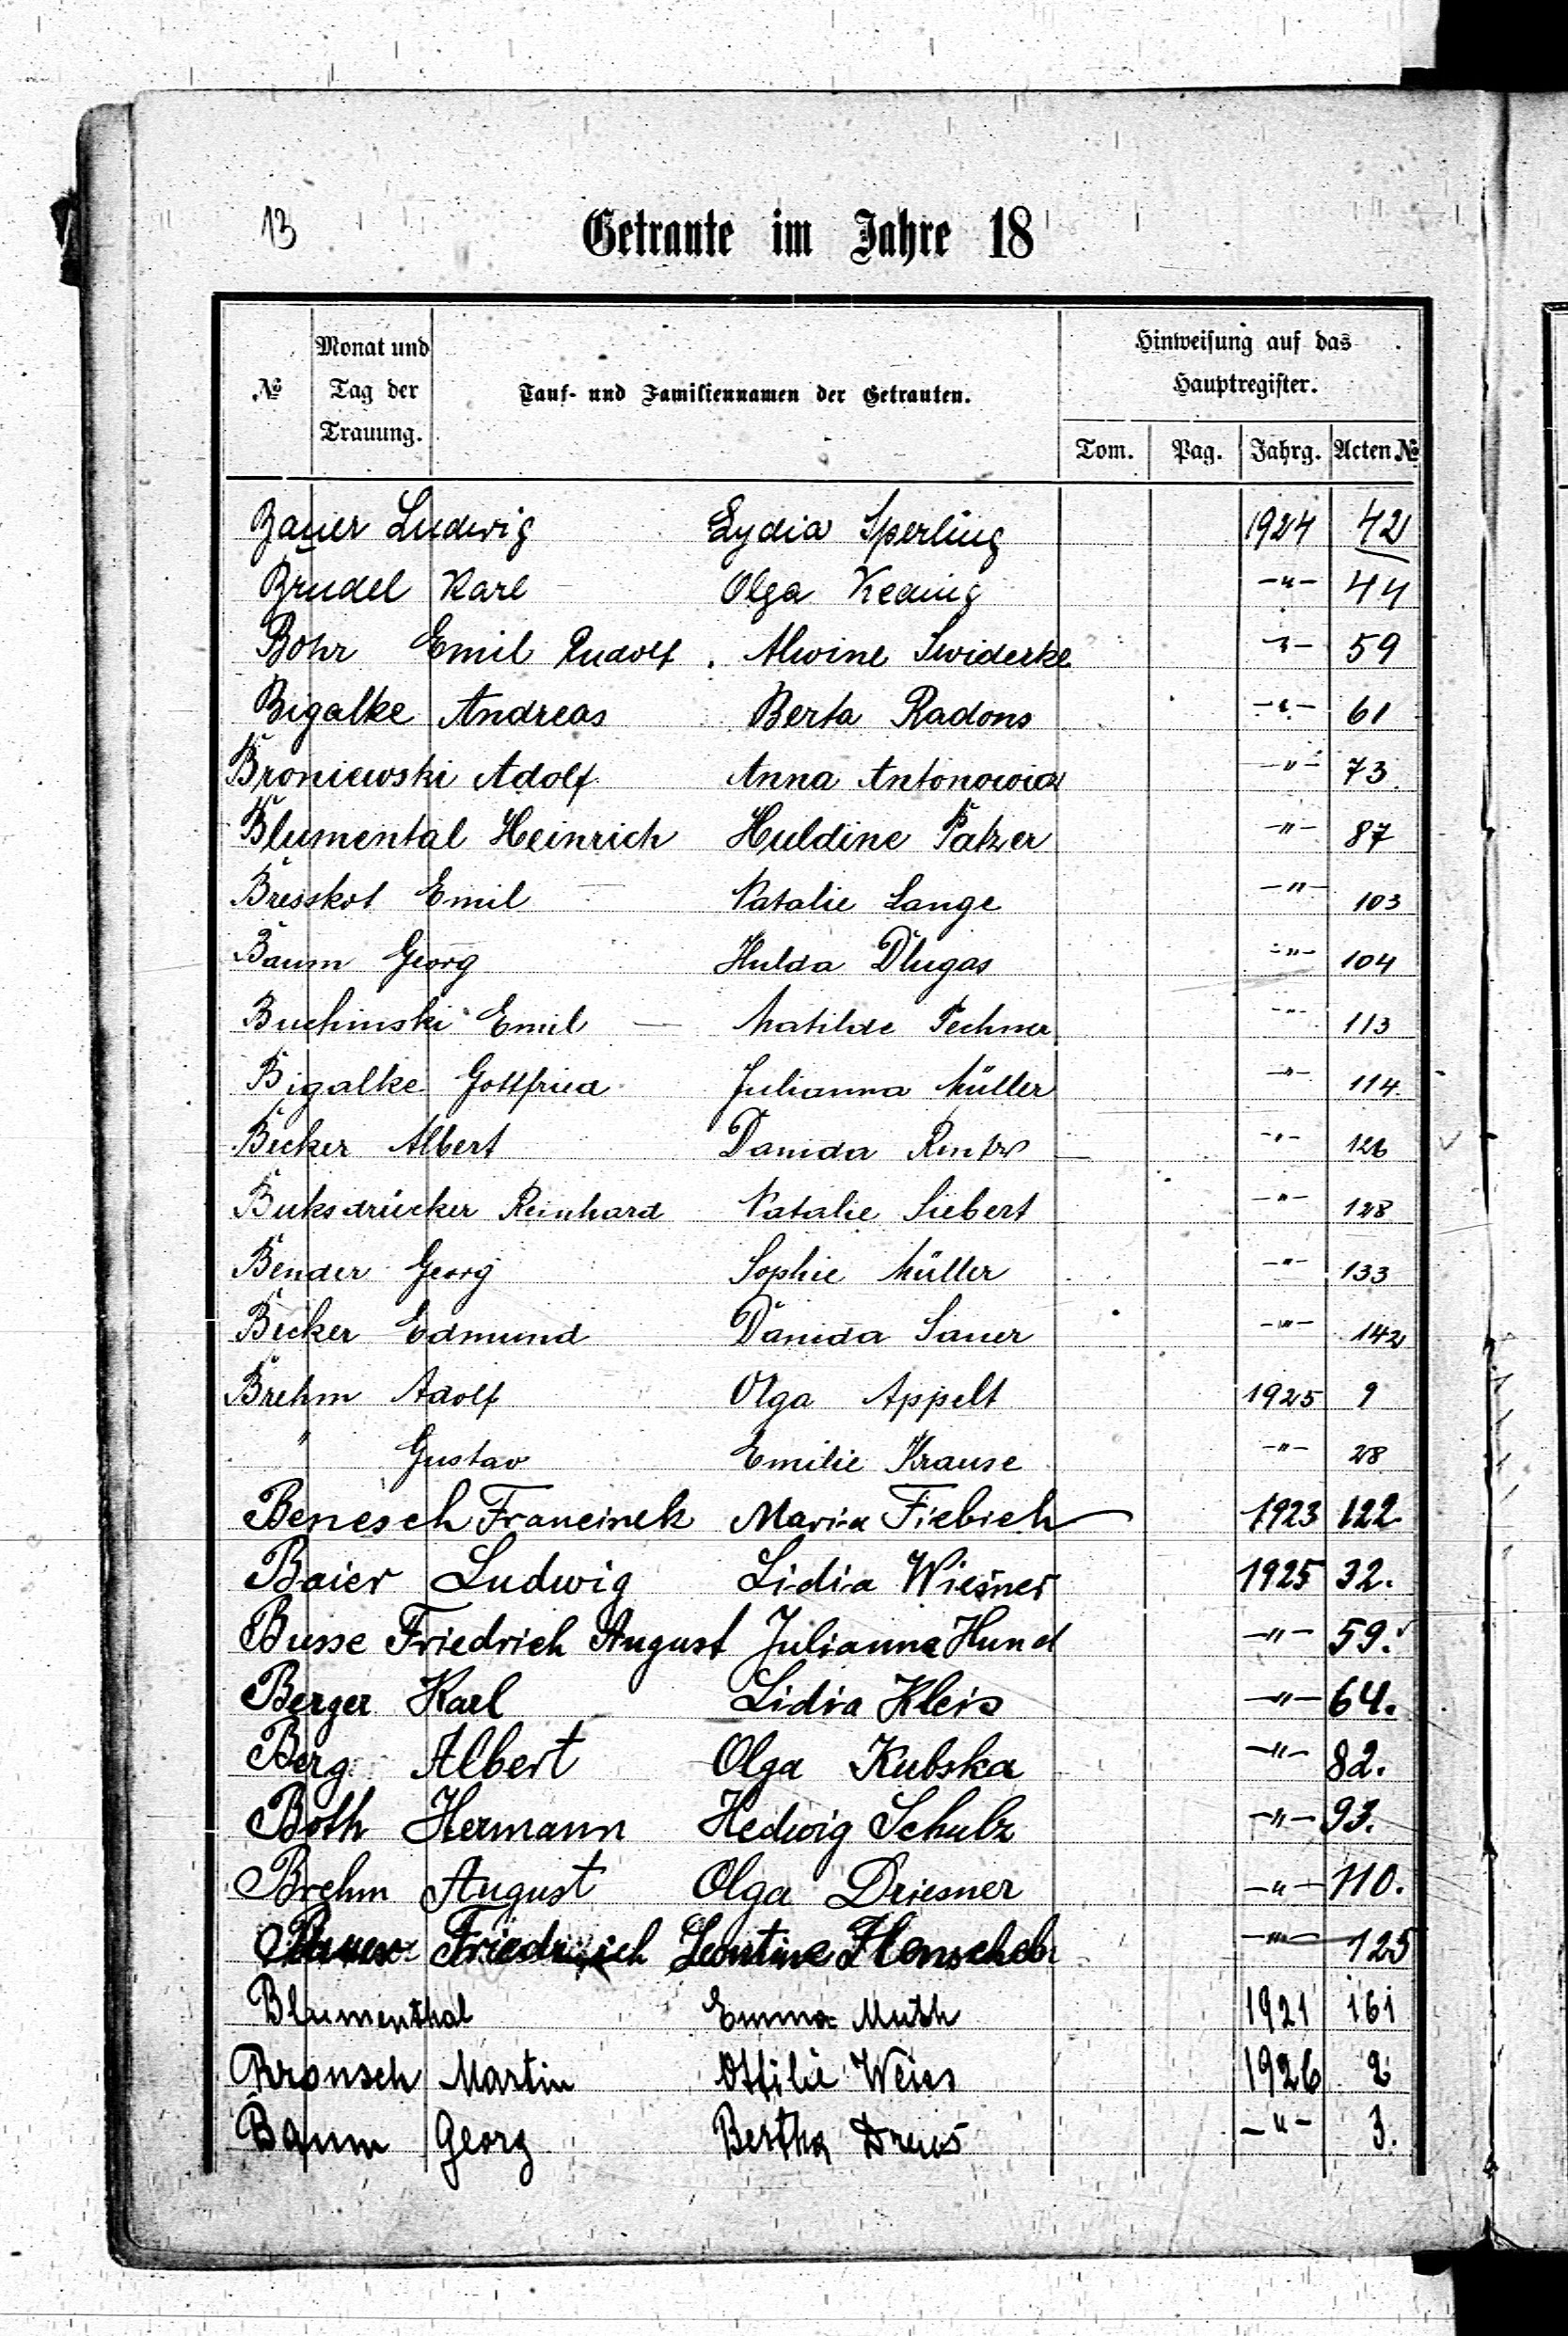 13
Getraute im Jahre 18
№ Monat und Tag der Trauung. Tauf- und Familiennamen der Getrauten. Hinweisung auf das Hauptregister.
Tom. Pag. Jahrg. Acten №
Bauer Ludwig Lydia Sperling 1924 42
Brudel Karl Olga Keding -"- 44
Bohr Emil Rudolf. Alwine Swiderke -"- 59
Bigalke Andreas Berta Radons -"- 61
Broniewski Adolf Anna -"- 73
Blumental Heinrich Huldine Patzer -"- 87
Bresskot Emil Natalie Lange -"- 103
Baum Georg Hulda Dlugas -"- 104
Buchinski Emil — Matilde Techner -"- 113
Bigalke Gottfried Julianna Müller -"- 114.
Becker Albert Danida -"- 126
Buksdrücker Reinhard Natalie Siebert -"- 128
Bender Georg Sophie Müller -"- 133
Becker Edmund Danida Sauer -"- 142
Brehm Adolf Olga Appelt 1925 9
" Gustav Emilie Krause -"- 28
Benesch Francinek Maria Fiebich 1923 122.
Baier Ludwig Lidia Wiesner 1925 32.
Busse Friedrich August Julianne Hund -"- 59.
Berger Karl Lidia Kleis -"- 64.
Berg Albert Olga Kubska -"- 82.
Both Hermann Hedwig Schulz -"- 93.
Brehm August Olga Driesner -"- 110.
Friedrich Leontine -"- 125
Blumenthal Emma Muth 1921 161
Bronsch Martin Ottilie Weiss 1926 2
Baum Georg Bertha Drews -"- 3.